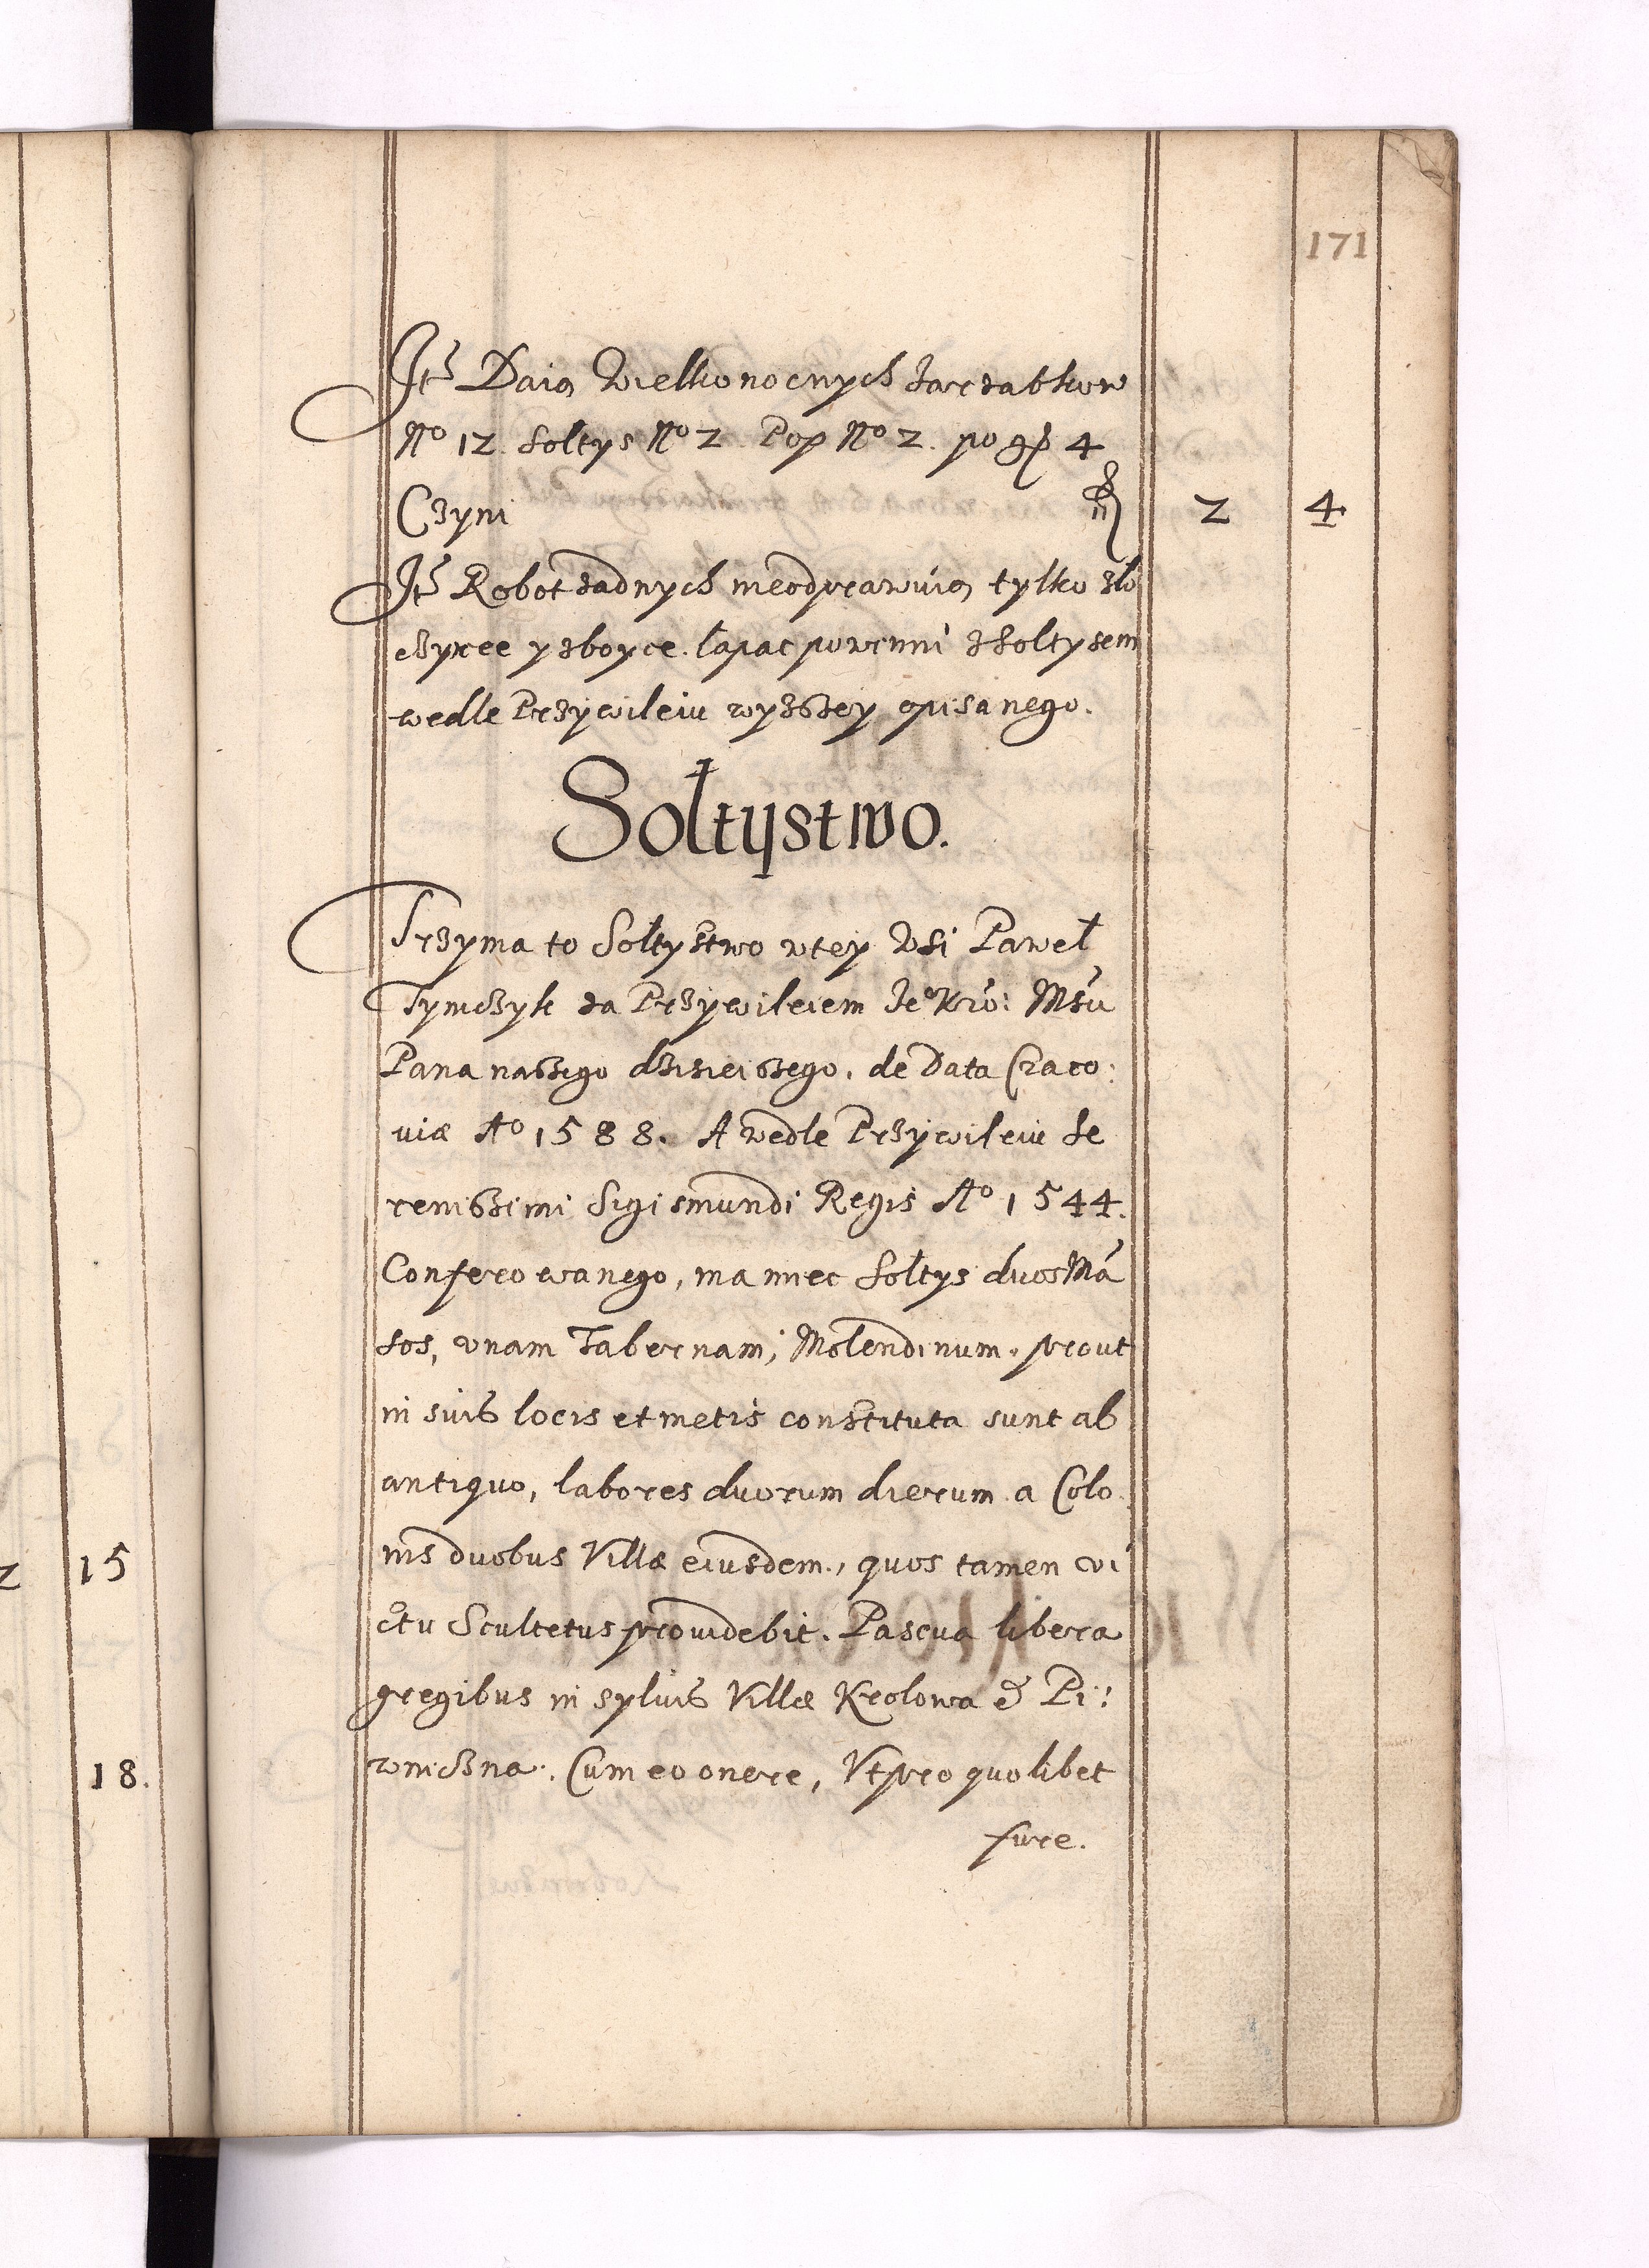 171
Itē Daią Wielkonocnych Jarząbkow
No 12. Sołtys No 2 Pop No 2. po gr 4
Czyni 2 4
Itē Robot żadnych nieodprawuią tylko zło
czyńce y zboyce łapać powinni z Sołtysem
wedle Przywileiu wyższey opisanego.
Sołtystwo.
Trzyma to Sołtystwo wtey Wsi Paweł
Tymczyk za Przywileiem Jeo Kro: Msci
Pana naszego dzisieiszego, de Data Craco:
uiæ Ao 1588. A wedle Przywileiu Se
renissimi Sigismundi Regis Ao 1544.
Conferowanego, ma miec Sołtys duos Ma
sos, vnam Tabernam, Molendinum, prout
in suis locis et metis constituta sunt ab
antiquo, labores duorum dierum a Colo
nis duobus Villæ eiusdem, quos tamen vi
ctu Scultetus prouidebit. Pascua libera
gregibus in syluis Villæ Krolowa & Pi:
wniczna. Cum eo onere, Vt pro quolibet
fure.
2 15
18.